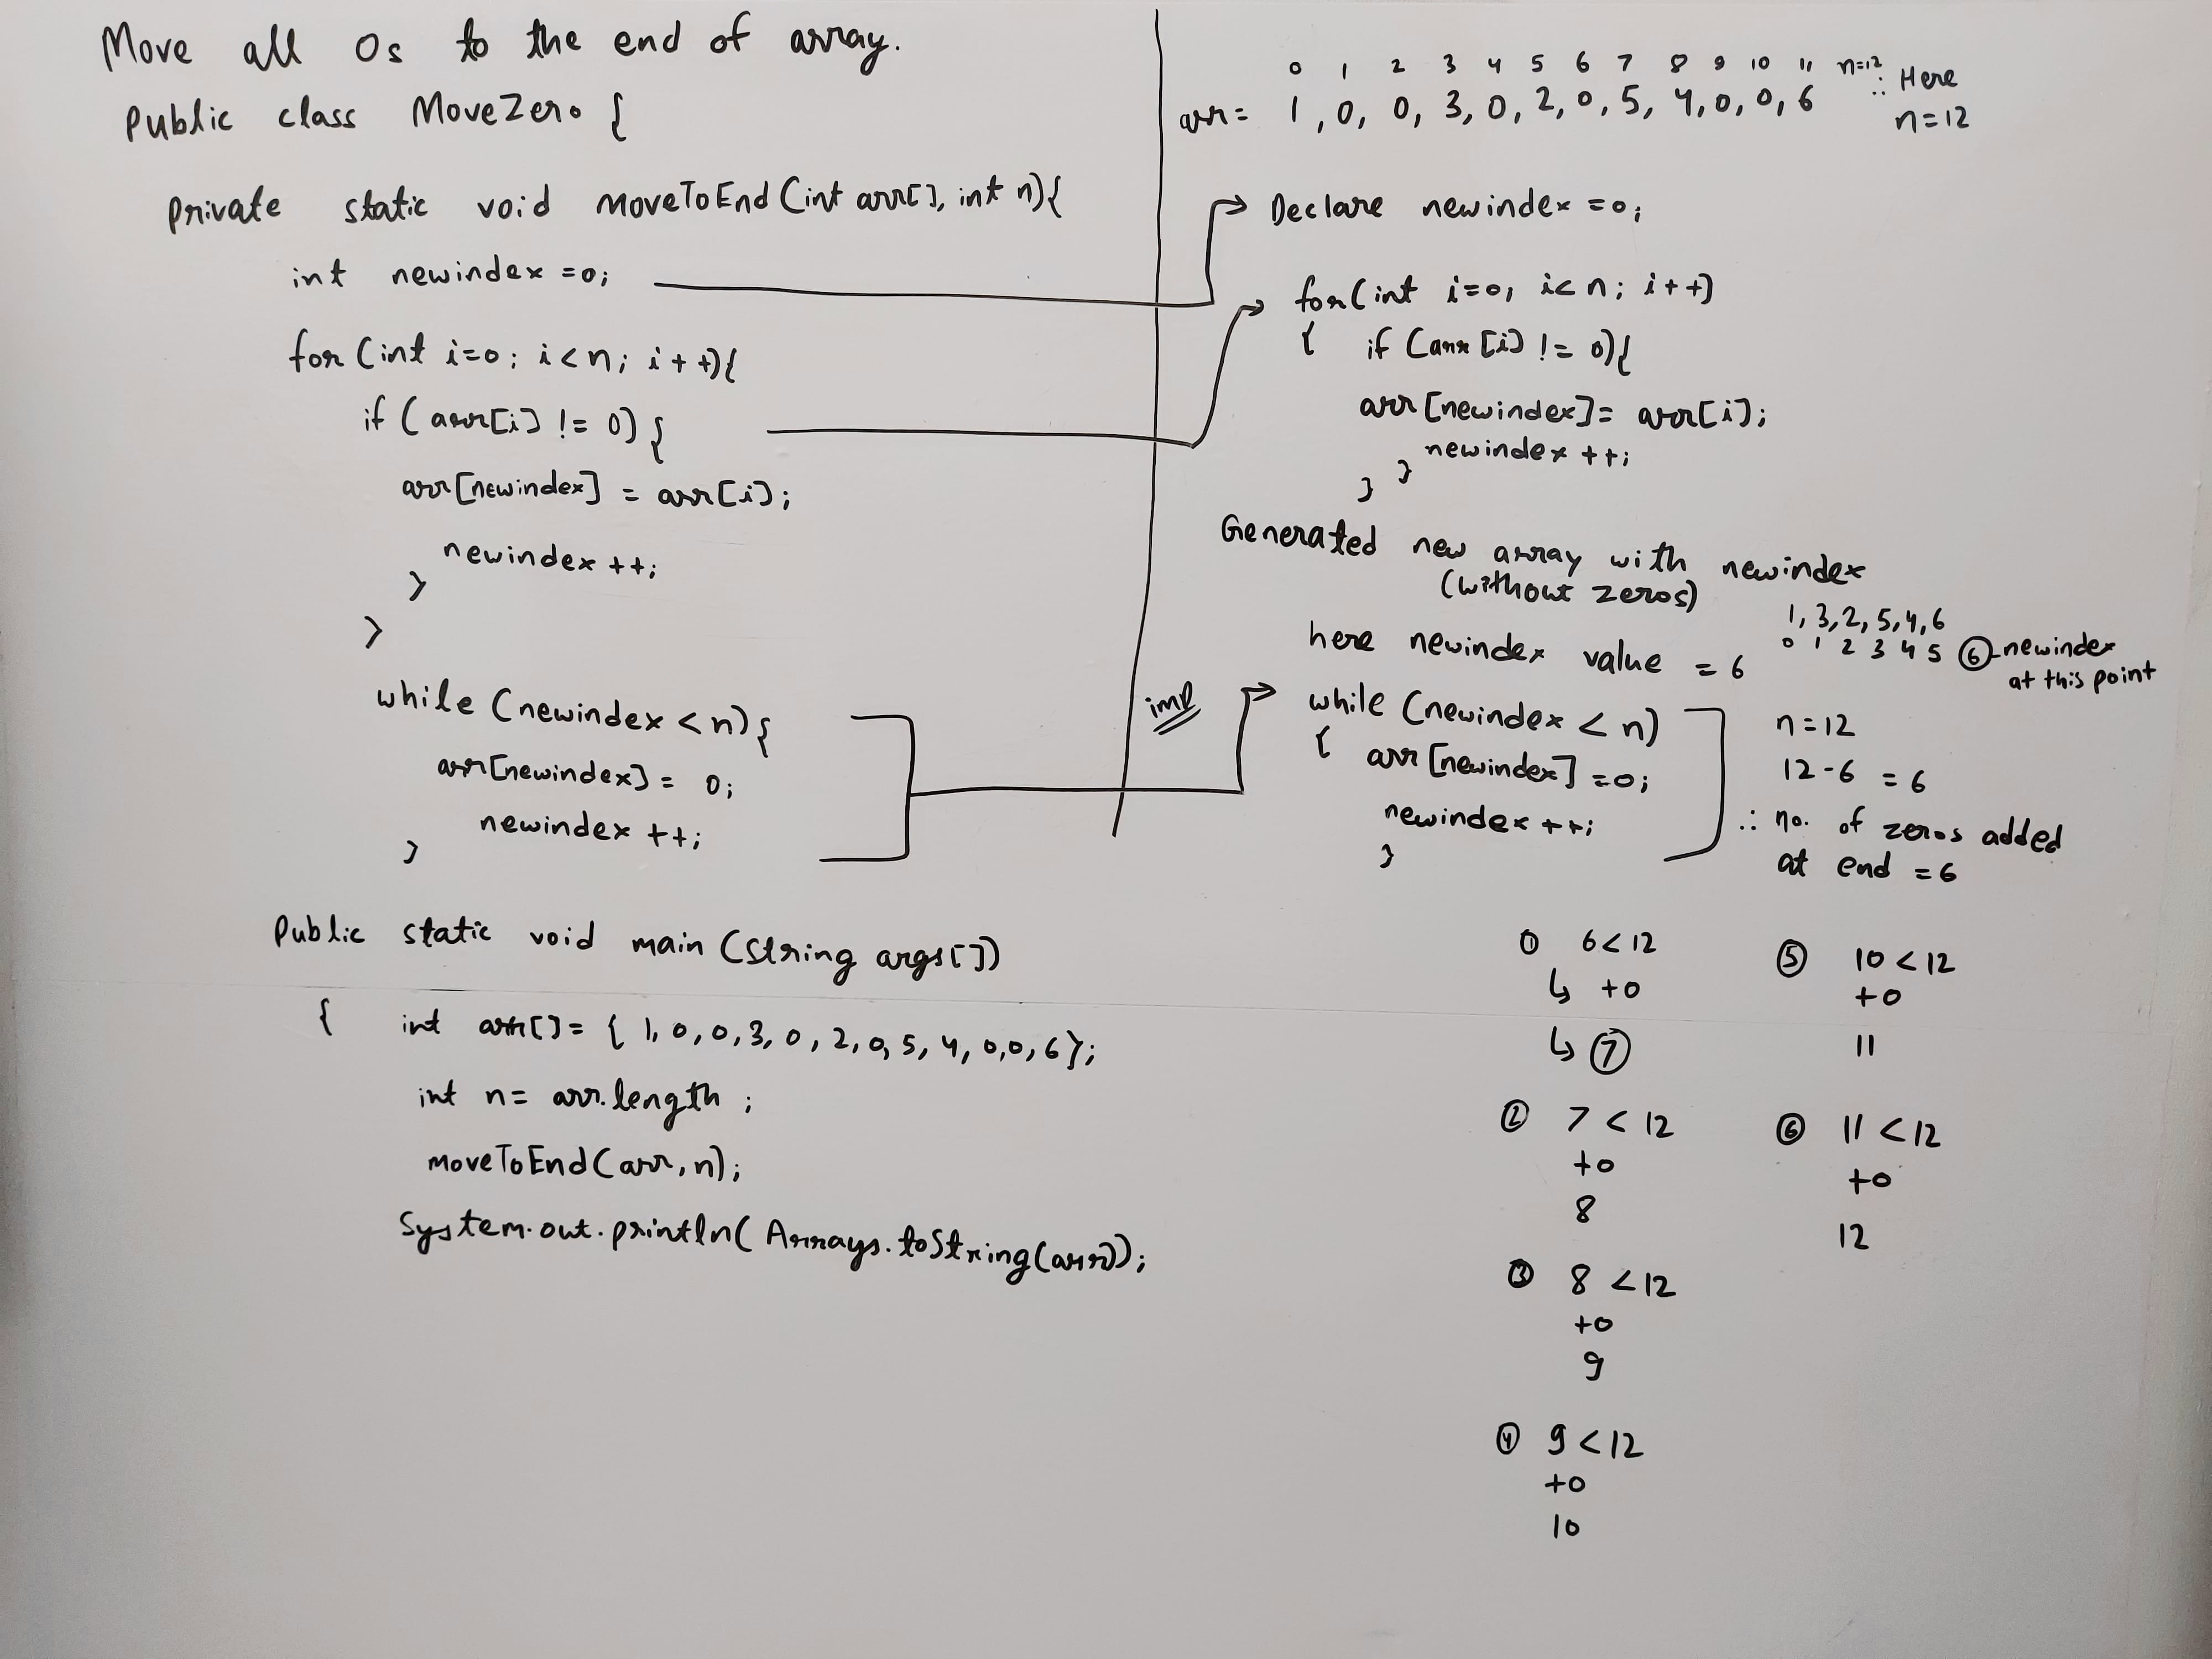 Move all 0s to the end of array.
Public class MoveZero {
Private static void moveToEnd (int arr[], int n){
int newindex =0;
for (int i=0; i<n; i++){
if (arr[i] != 0) {
arr[newindex] = arr[i];
newindex ++;
}
}
while (newindex < n) {
arr[newindex] = 0;
newindex ++;
}
Public static void main (String args[])
{ int arr[] = { 1, 0, 0, 3, 0, 2, 0, 5, 4, 0, 0, 6 };
int n= arr.length ;
moveToEnd(arr, n);
System.out.println( Arrays.toString(arr));
0 1 2 3 4 5 6 7 8 9 10 11 n=12
arr = 1, 0, 0, 3, 0, 2, 0, 5, 4, 0, 0, 6
∴ Here
n=12
Declare newindex =0;
for (int i=0, i< n; i++)
{ if (arr [i] != 0){
arr [newindex] = arr[i];
newindex ++;
}
}
Generated new array with newindex
(without zeros)
1, 3, 2, 5, 4, 6
0 1 2 3 4 5 6 - newindex
at this point
here newindex value = 6
imp
while (newindex < n)
{ arr [newindex] =0;
newindex ++;
}
n=12
12-6 = 6
∴ no. of zeros added
at end = 6
① 6 < 12
↳ +0
↳ ⑦
② 7 < 12
+0
8
③ 8 < 12
+0
9
④ 9 < 12
+0
10
⑤ 10 < 12
+0
11
⑥ 11 < 12
+0
12